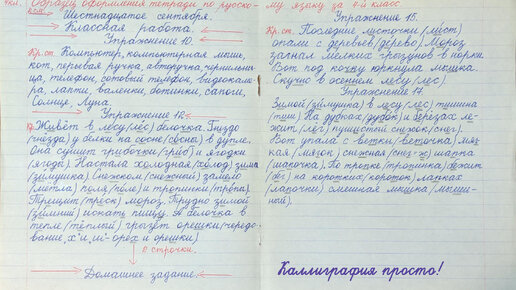 чки. Образец оформления тетради по русско-
Шестнадцатое сентября.
Классная работа.
Упражнение 10.
Кр.ст. Компьютер, компьютерная мышь,
кот, перьевая ручка, авторучка, чернильни-
ца, телефон, сотовый телефон, видеокаме-
ра, лапти, валенки, ботинки, сапоги,
Солнце, Луна.
Упражнение 12.
Живёт в лесу (лес) белочка. Гнездо
(гнёзда) у белки на сосне (сосна) в дупле.
Она сушит грибочки (гриб) и ягодки
(ягода). Настала холодная (холод) зима
(зимушка). Снежком (снежный) замело
(метла) поля (поле) и тропинки (тропы).
Трещит (треск) мороз. Трудно зимой
(зимний) искать пищу. А белочка в
тепле (тёплый) грызёт орешки (чередо-
вание "х" и "ш" - орех и орешки)
2 строчки.
Домашнее задание.
му языку за 4-й класс
Упражнение 15.
Кр.ст. Последние листочки (лист)
опали с деревьев (дерево). Мороз
загнал мелких грызунов в норки.
Вот под кочку юркнула мышка.
Скучно в осеннем лесу (лес).
Упражнение 17.
Зимой (зимушка) в лесу (лес) тишина
(тиш). На дубках (дубок) и берёзах ле-
жит (лёг) пушистый снежок (снег).
Вот упала с ветки (веточка) мяг-
кая (мягок) снежная (снег-ж) шапка
(шапочка). По тропке (тропинка) бежит
(бег) на коротких (короток) лапках
(лапочки) смешная мышка (мыши-
ный).
Каллиграфия просто!